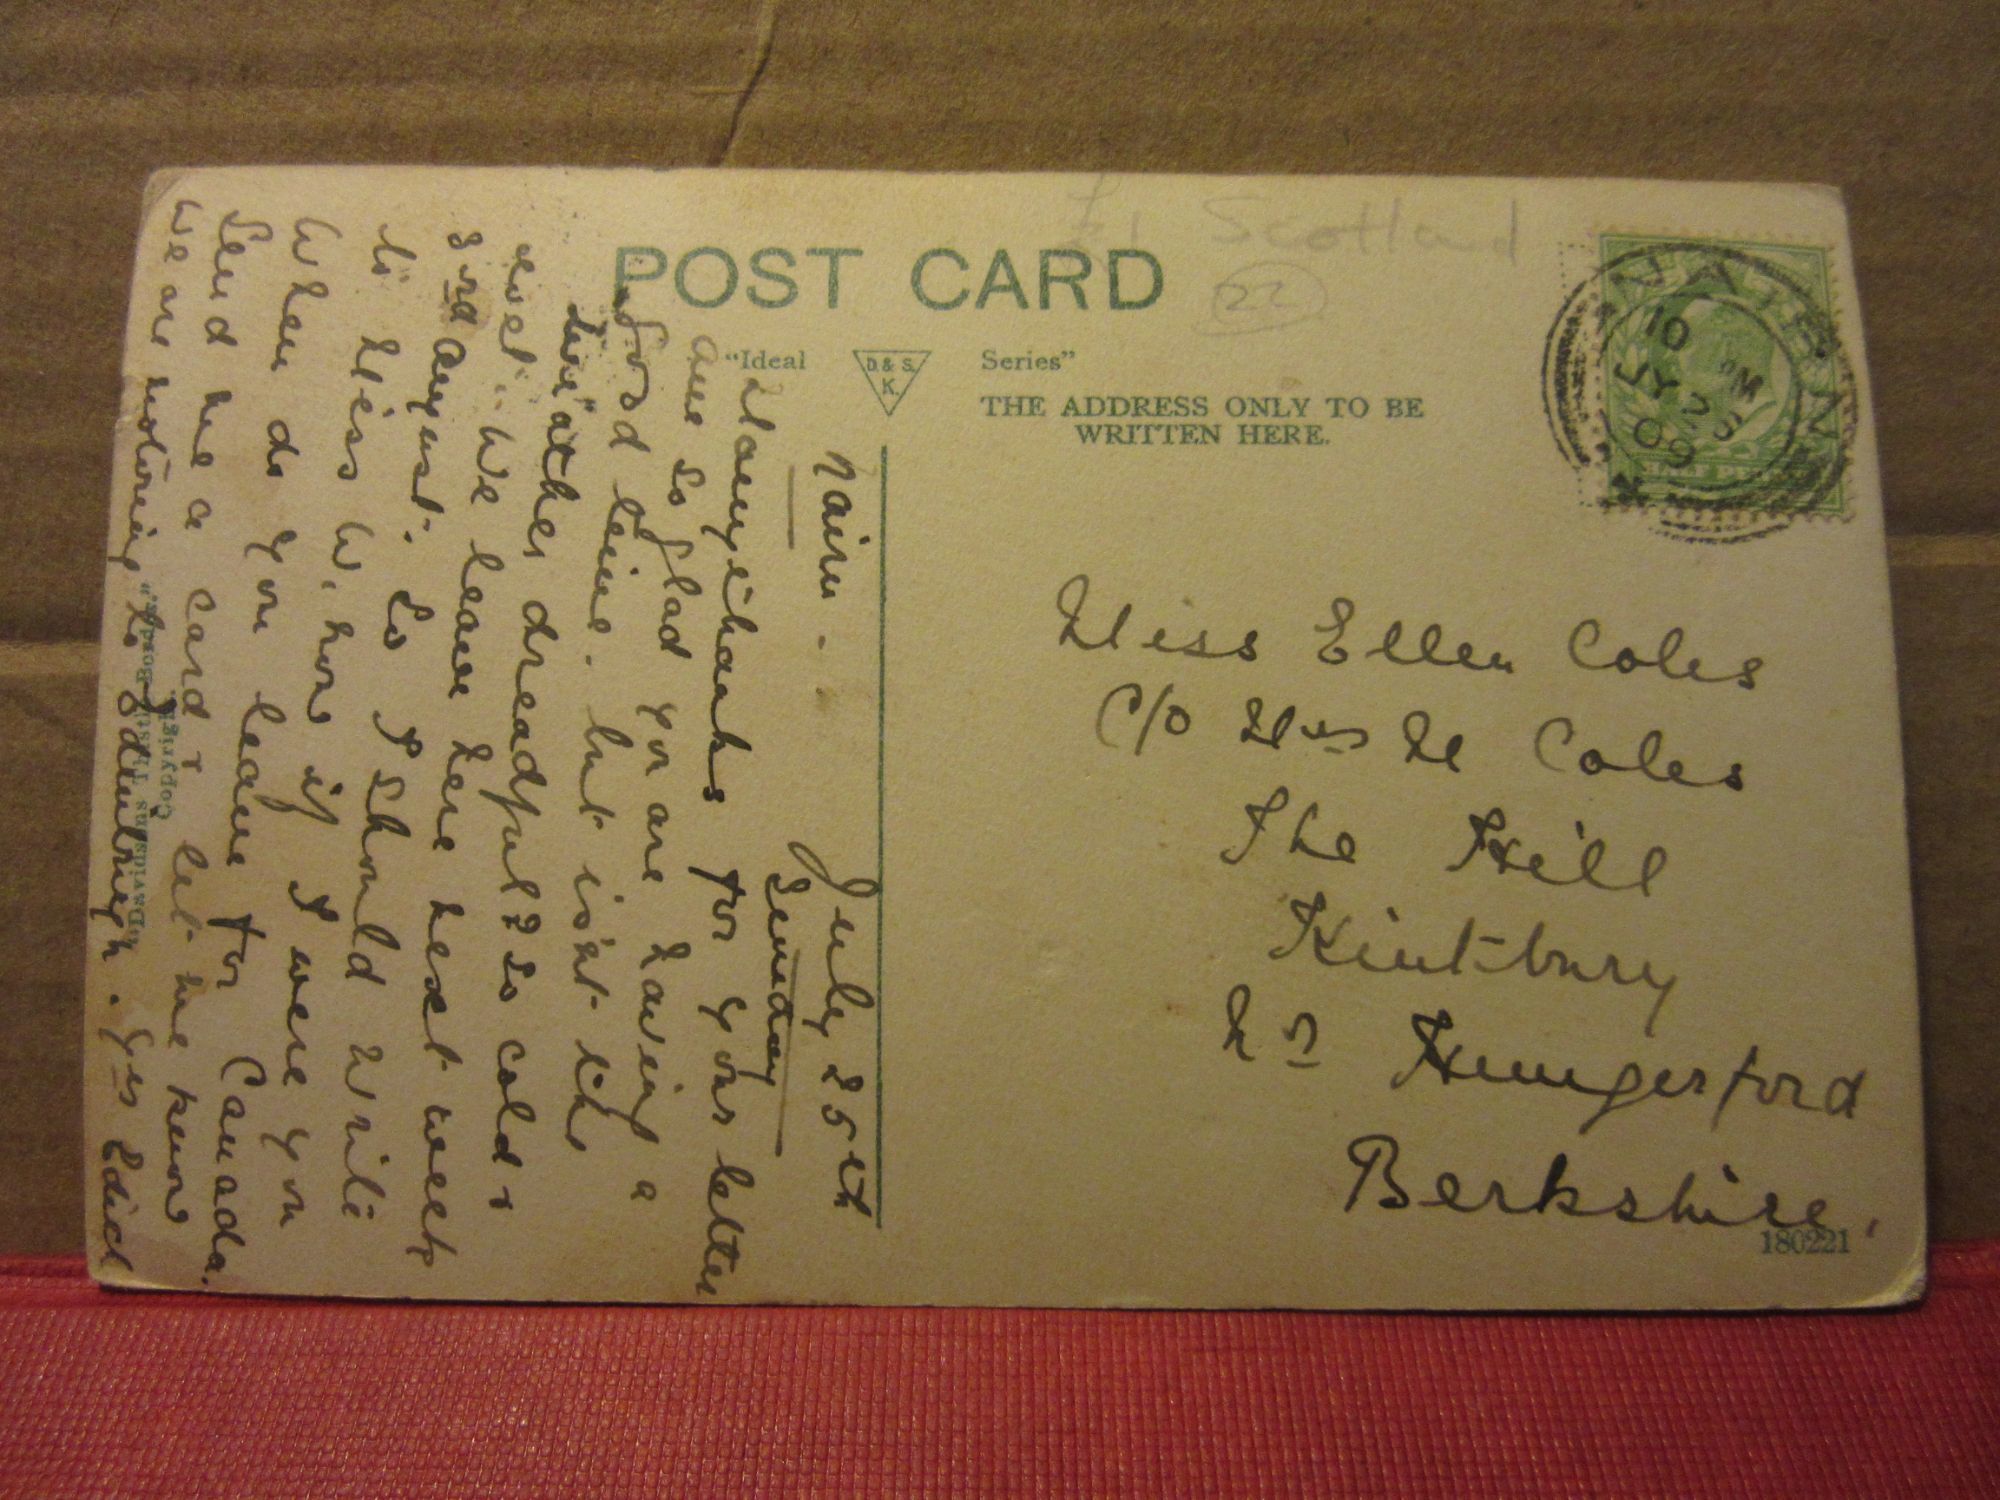 £1 Scotland
22
POST CARD
"Ideal D. & S. K. Series"
THE ADDRESS ONLY TO BE
WRITTEN HERE.
NAIRN
10 PM
JY 25
09
HALF PE
Miss Ellen Coles
C/o Mrs M Coles
The Hill
Kintbury
Nr Hungerford
Berkshire.
180221
Nairn. July 25th
Sunday
Many thanks for your letter
am so glad you are having a
good time. but isn't the
weather dreadful? So cold &
wet. We leave here next week
3rd August. So I should write
to Miss W. now if I were you
When do you leave for Canada.
Send me a card & let me know
We are motoring to Edinburgh. Yrs Edied
Copyright.